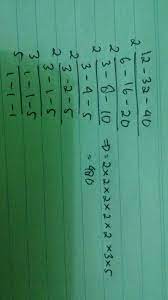 2 | 12 - 32 - 40
2 | 6 - 16 - 20
2 | 3 - 8 - 10 ⇒ 2×2×2×2×2×3×5
2 | 3 - 4 - 5 = 480
2 | 3 - 2 - 5
3 | 3 - 1 - 5
5 | 1 - 1 - 5
1 - 1 - 1